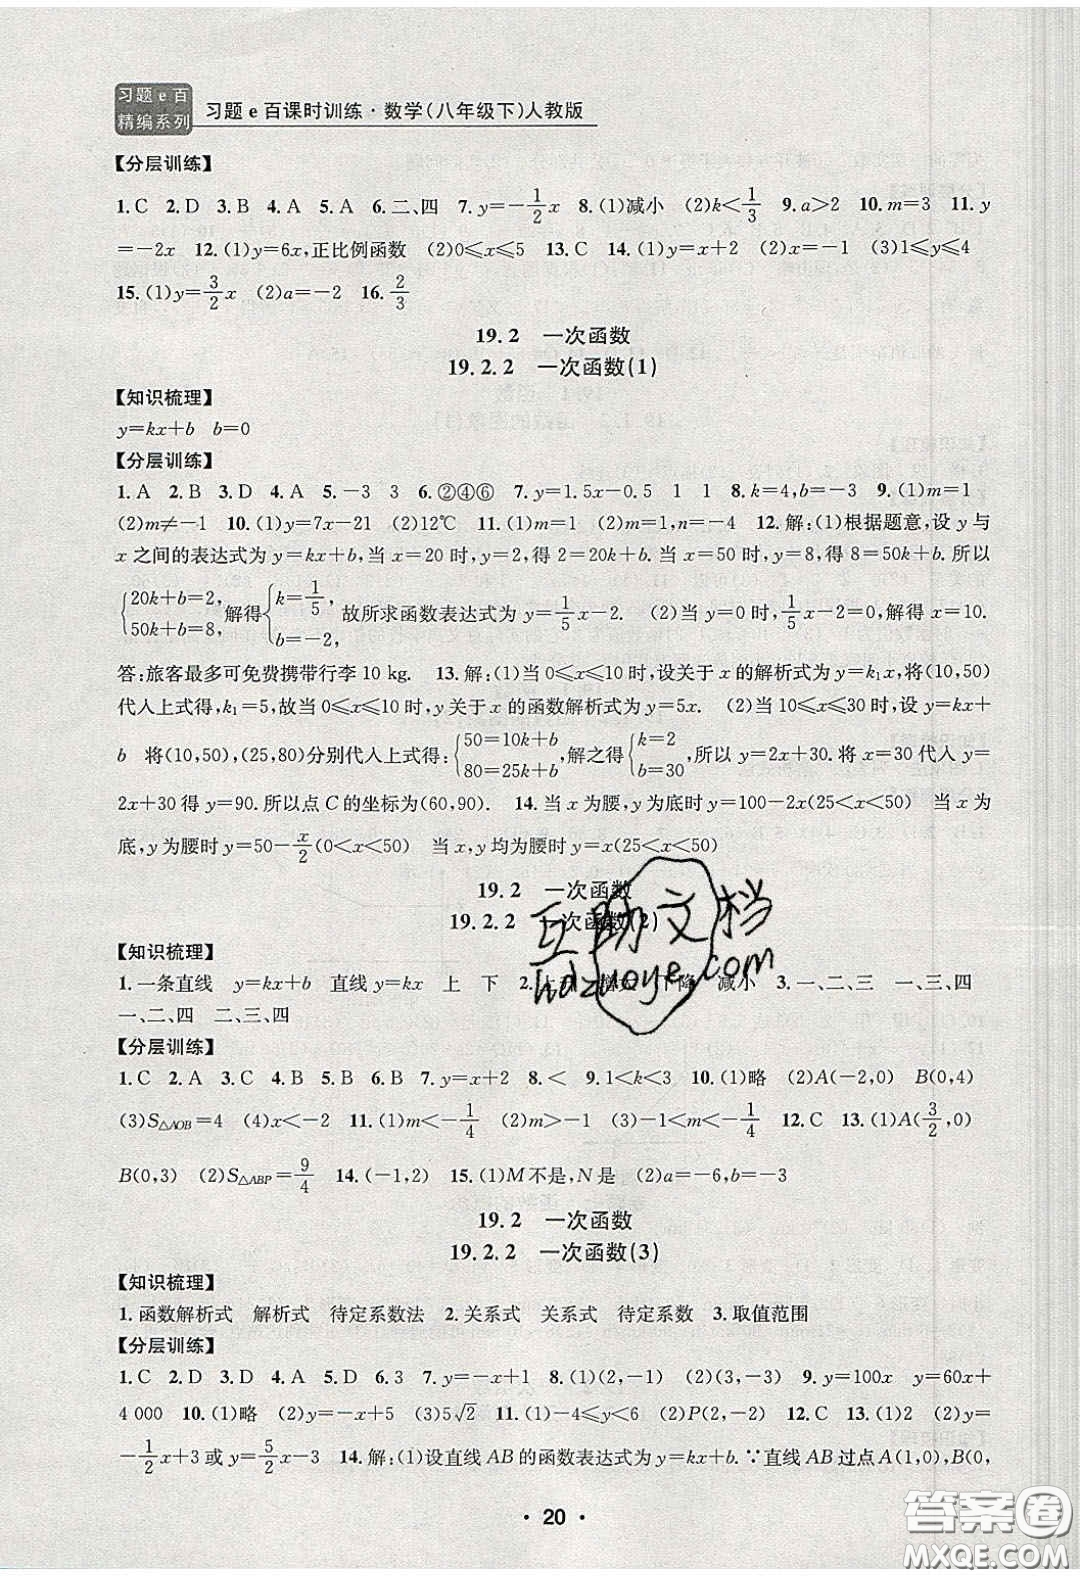 习题e百
精编系列
习题e百课时训练·数学(八年级下)人教版
【分层训练】
1.C 2.D 3.B 4.A 5.A 6.二、四 7.y=-1/2x 8.(1)减小 (2)k<1/3 9.a>2 10.m=3 11.y
=-2x 12.(1)y=6x,正比例函数 (2)0≤x≤5 13.C 14.(1)y=x+2 (2)x=-1 (3)1≤y≤4
15.(1)y=3/2x (2)a=-2 16.2/3
19.2 一次函数
19.2.2 一次函数(1)
【知识梳理】
y=kx+b b=0
【分层训练】
1.A 2.B 3.D 4.A 5.-3 3 6.②④⑥ 7.y=1.5x-0.5 1 1 8.k=4,b=-3 9.(1)m=1
(2)m≠-1 10.(1)y=7x-21 (2)12℃ 11.(1)m=1 (2)m=1,n=-4 12.解:(1)根据题意,设y与
x之间的表达式为y=kx+b,当x=20时,y=2,得2=20k+b.当x=50时,y=8,得8=50k+b.所以
{20k+b=2, 50k+b=8, 解得{k=1/5, b=-2, 故所求函数表达式为y=1/5x-2. (2)当y=0时,1/5x-2=0,解得x=10.
答:旅客最多可免费携带行李10 kg. 13.解:(1)当0≤x≤10时,设关于x的解析式为y=k₁x,将(10,50)
代入上式得,k₁=5,故当0≤x≤10时,y关于x的函数解析式为y=5x. (2)当10≤x≤30时,设y=kx+
b 将(10,50),(25,80)分别代入上式得:{50=10k+b 80=25k+b, 解之得{k=2 b=30, 所以y=2x+30.将x=30代入y=
2x+30得y=90.所以点C的坐标为(60,90). 14.当x为腰,y为底时y=100-2x(25<x<50) 当x为
底,y为腰时y=50-x/2(0<x<50) 当x,y均为腰时y=x(25<x<50)
19.2 一次函数
19.2.2 一次函数(2)
【知识梳理】
1.一条直线 y=kx+b 直线y=kx 上 下 2.上升 增大 下降 减小 3.一、二、三 一、三、四
一、二、四 二、三、四
【分层训练】
1.C 2.A 3.C 4.B 5.B 6.B 7.y=x+2 8.< 9.1<k<3 10.(1)略 (2)A(-2,0) B(0,4)
(3)S△AOB=4 (4)x<-2 11.(1)m<-1/4 (2)m>-1 (3)-1<m<-1/4 12.C 13.(1)A(3/2,0)
B(0,3) (2)S△ABP=9/4 14.(-1,2) 15.(1)M不是,N是 (2)a=-6,b=-3
19.2 一次函数
19.2.2 一次函数(3)
【知识梳理】
1.函数解析式 解析式 待定系数法 2.关系式 关系式 待定系数 3.取值范围
【分层训练】
1.C 2.D 3.D 4.A 5.D 6.3 7.y=-x+1 8.(1)(2,-1) (2)(3,-3) 9.y=100x y=60x+
4 000 10.(1)略 (2)y=-x+5 (3)5√2 11.(1)-4≤y<6 (2)P(2,-2) 12.C 13.(1)2 (2)y=
-1/2x+3或y=5/2x-3 14.解:(1)设直线AB的函数表达式为y=kx+b.∵直线AB过点A(1,0),B(0,
· 20 ·
互助文档
hdzuoye.com
答案圈
MXQE.COM